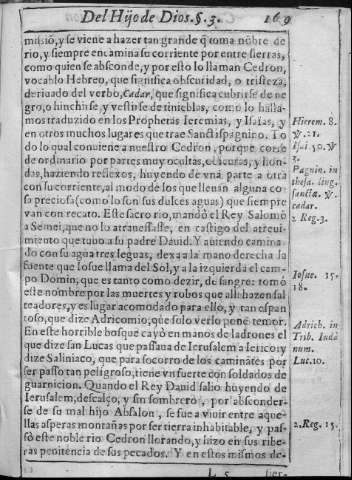 Del Hijo de Dios. §. 3. 169
mismo, y se viene a hazer tan grande q̃ toma nõbre de
rio, y siempre encamina su corriente por entre sierras,
como quien se absconde, y por esto lo llaman Cedron,
vocablo Hebreo, que significa obscuridad, o tristeza,
deriuado del verbo, Cadar, que significa cubrirse de ne
gro, o hinchirse, y vestirse de tinieblas, como lo halla-
mos traduzido en los Prophetas Ieremias, y Isaias, y
en otros muchos lugares que trae Sanctispagnino. To
do lo qual conuiene a nuestro Cedron, porque corre
de ordinario por partes muy ocultas, obscuras, y hon-
das, haziendo reflexos, huyendo de vna parte a otra
con su corriente, al modo de los que lleuan alguna co-
sa preciosa (como lo son sus dulces aguas) que siempre
van con recato. Este sacro rio, mandò el Rey Salomõ
a Semei, que no lo atrauesasse, en castigo del atreui-
miento que tuuo a su padre Dauid. Y auiendo camina
do con su agua tres leguas, dexa a la mano derecha la
fuente que Iosue llama del Sol, y a la izquierda el cam-
po Domin, que es tanto como dezir, de sangre: tomò
este nombre por las muertes y robos que alli hazen sal
teadores, y es lugar acomodado para ello, y tan espan
toso, que dize Adricomio, que solo verlo pone temor.
En este horrible bosque cayò en manos de ladrones el
que dize san Lucas que passaua de Ierusalem a Ierico: y
dize Saliniaco, que para socorro de los caminātes por
ser passo tan peligroso, tiene vn fuerte con soldados de
guarnicion. Quando el Rey Dauid salio huyendo de
Ierusalem, descalço, y sin sombrero, por absconder-
se de su mal hijo Absalon, se fue a viuir entre aque-
llas asperas montañas por ser tierra inhabitable, y pas-
sò este noble rio Cedron llorando, y hizo en sus ribe-
ras penitencia de sus pecados. Y en estos mismos de-
L 5
Hierem. 8.
Ψ. 21.
Isai 50. Ψ
3.
Pagnin. in
thesa. ling.
sanctæ. Ψ.
cadar.
3. Reg. 3.
Iosue. 15.
18.
Adrich. in
Trib. Iudà
num.
Luc. 10.
2. Reg. 15.